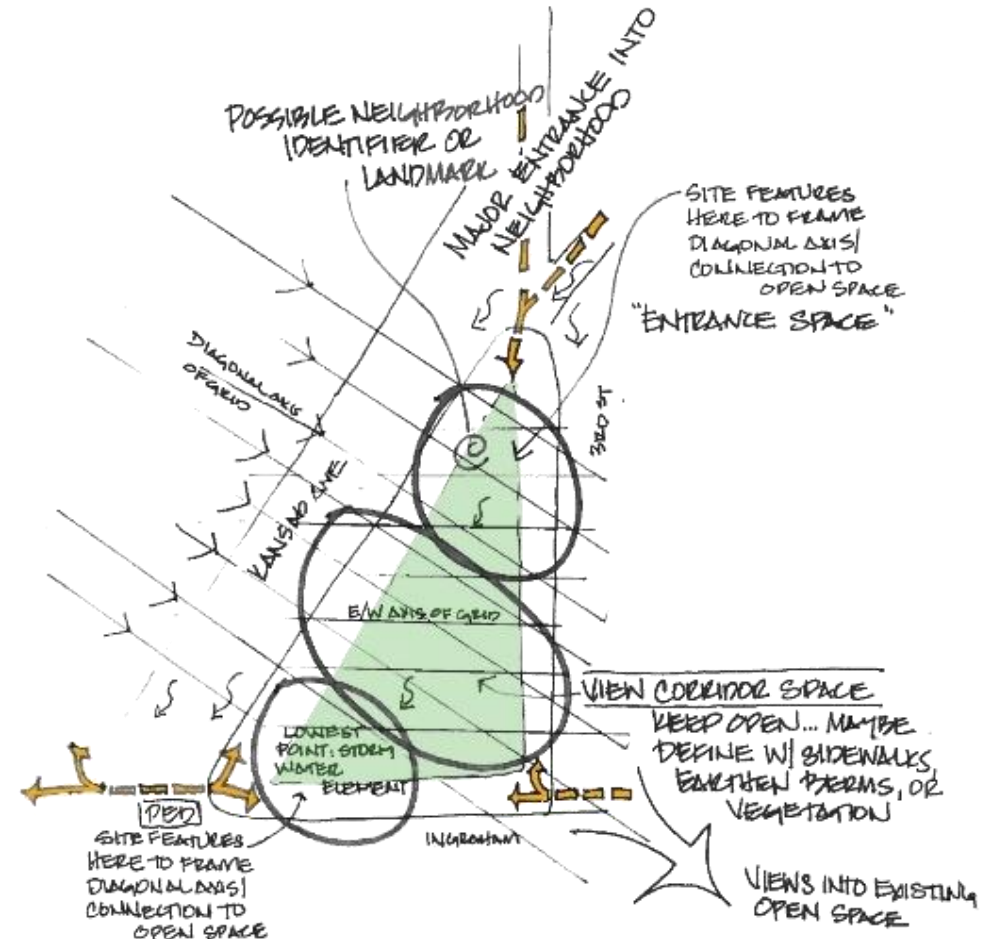 POSSIBLE NEIGHBORHOOD
IDENTIFIER OR
LANDMARK
MAJOR ENTRANCE INTO
NEIGHBORHOOD
SITE FEATURES
HERE TO FRAME
DIAGONAL AXIS/
CONNECTION TO
OPEN SPACE
"ENTRANCE SPACE"
DIAGONAL AXIS
OF GRID
3RD ST.
KANSAS AVE
E/W AXIS OF GRID
VIEW CORRIDOR SPACE
KEEP OPEN... MAYBE
DEFINE W/ SIDEWALKS,
EARTHEN BERMS, OR
VEGETATION
LOWEST
POINT: STORM
WATER
ELEMENT
PED
SITE FEATURES
HERE TO FRAME
DIAGONAL AXIS/
CONNECTION TO
OPEN SPACE
INGRAHAM
VIEWS INTO EXISTING
OPEN SPACE